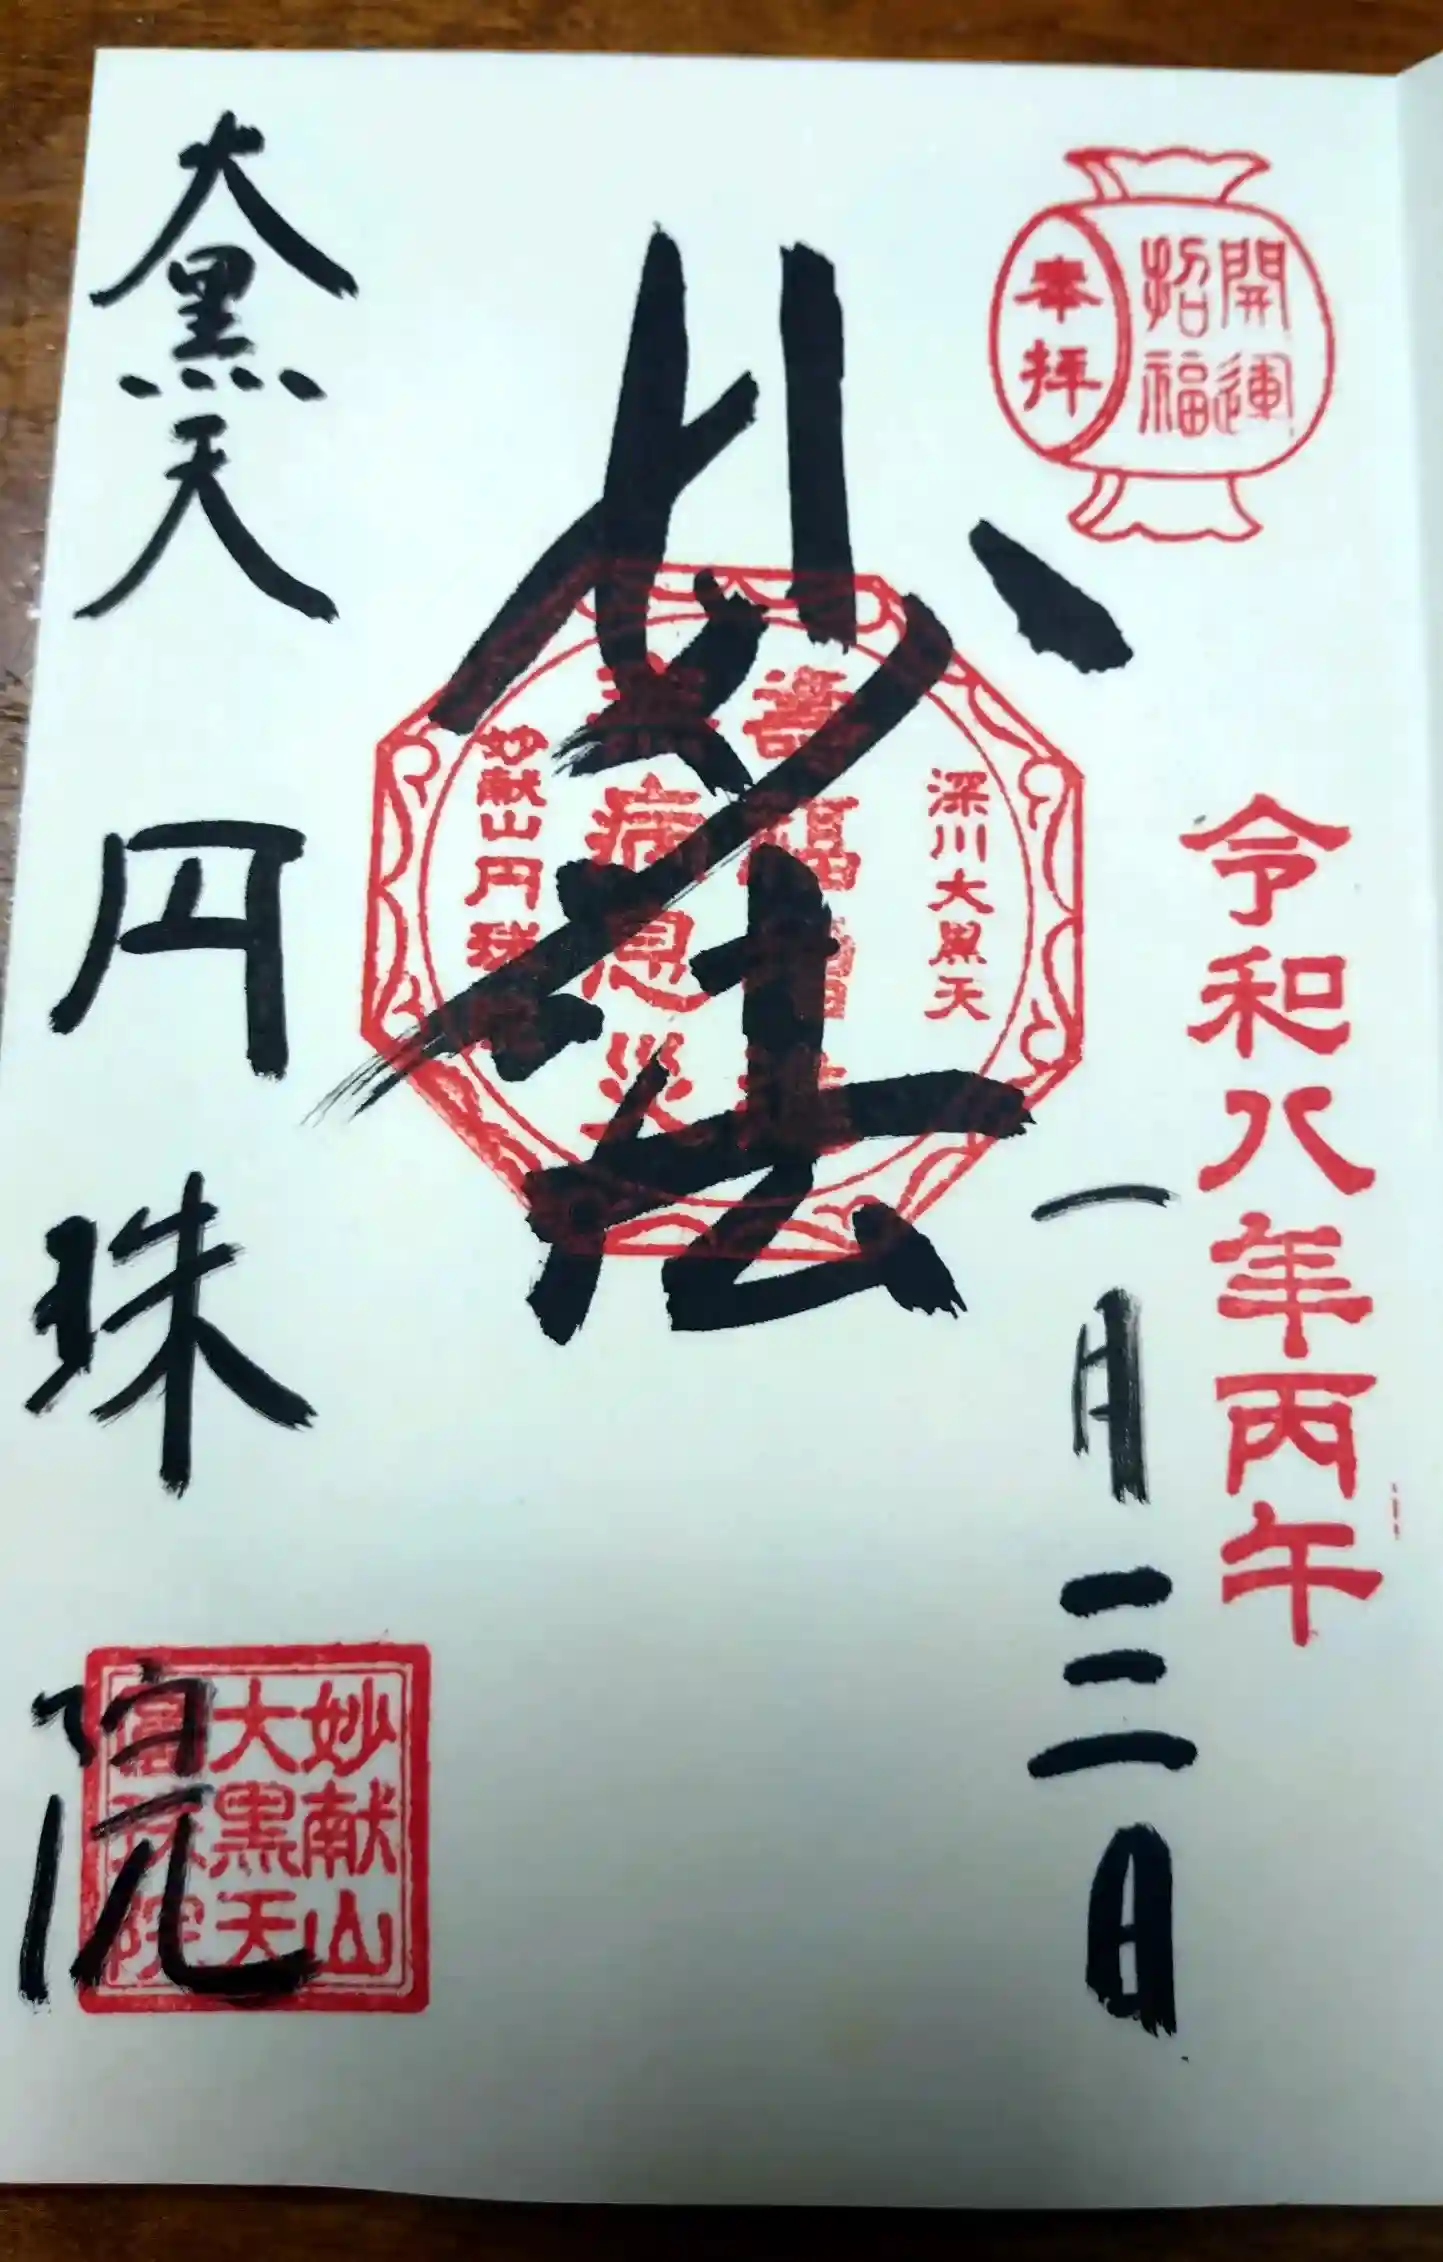 開運
招福
奉拝
令和八年丙午
一月三日
妙法
深川大黒天
病息災
妙献山円珠
大黒天
円珠院
妙献山
大黒天